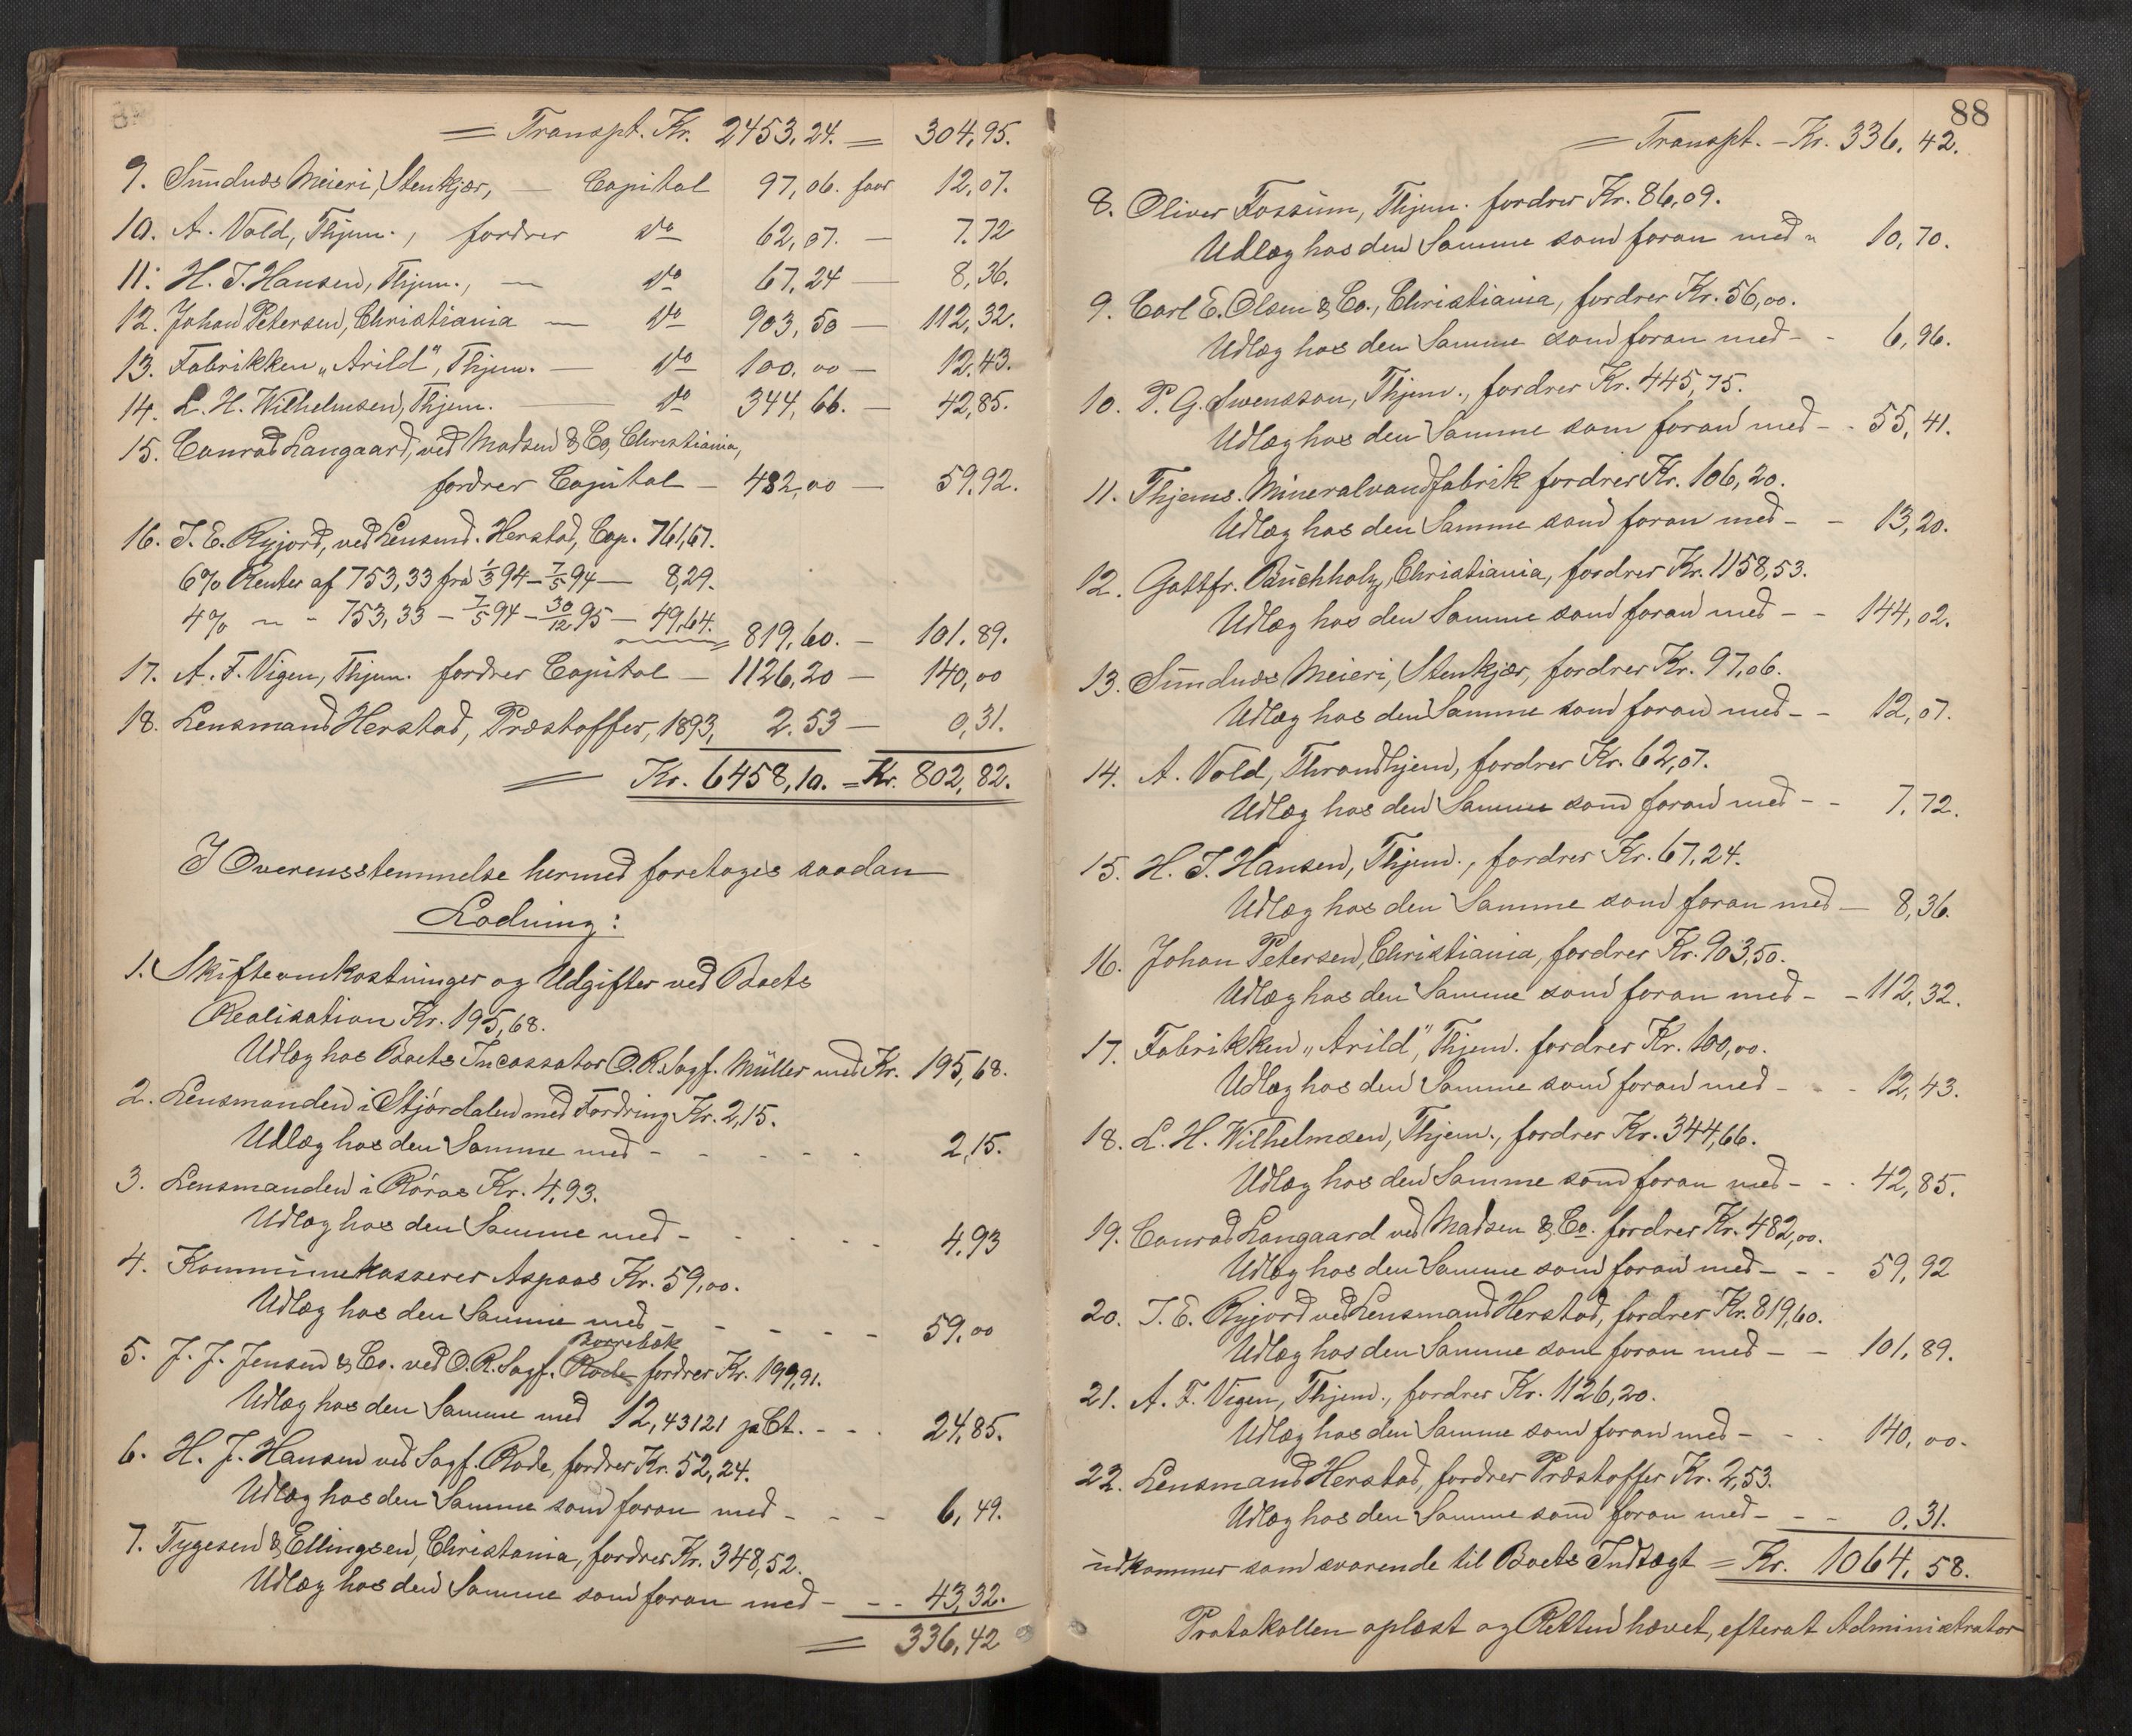 = Transpt. Kr. 2453,24. = 304,95.
9. Sundnæs Meieri, Stenkjær, — Capital 97,06. faar 12,07.
10. A. Vold, Thjem., fordrer do 62,07. — 7.72
11. H. J. Hansen, Thjem., — do 67,24 — 8,36.
12. Johan Petersen, Christiania — do 903,50 — 112,32.
13. Fabrikken „Arild", Thjem. — do 100,00 — 12,43.
14. L. H. Wilhelmsen, Thjem. — do 344,66. — 42,85.
15. Conrad Langaard, ved Madsen & Co, Christiania,
fordrer Capital — 482,00 — 59,92.
16. J. E. Ryjord, ved Lensmd. Herstad, Cap. 761,67.
6% Renter af 753,33 fra 1/3 94 – 7/5 94 — 8,29.
4% " - 753,33 – 7/5 94 – 30/12 95 — 49,64. 819,60. — 101.89.
17. A. F. Vigen, Thjem. fordrer Capital — 1126,20 — 140,00
18. Lensmand Herstad, Præstoffer, 1893, 2.53 — 0,31.
= Kr. 6458,10. = Kr. 802,82.
I Overensstemmelse hermed foretoges saadan
Lodning:
1. Skifteomkostninger og Udgifter ved Boets
Realisation Kr. 195,68.
Udlæg hos Boets Incassator O.R.Sagf. Müller med Kr. 195,68.
2. Lensmanden i Stjørdalen med Fordring Kr. 2,15.
Udlæg hos den Samme med - - - - - 2,15.
3. Lensmanden i Røros Kr. 4,93.
Udlæg hos den Samme med - - - - - 4,93
4. Kommunekasserer Aspaas Kr. 59,00.
Udlæg hos den Samme med - - - - - 59,00
Borrebæk
5. J. J. Jensen & Co. ved O.R.Sagf. Rode fordrer Kr. 199,91.
Udlæg hos den Samme med 12,43121 pCt. - - - 24,85.
6. H. J. Hansen ved Sagf. Rode, fordrer Kr. 52,24.
Udlæg hos den Samme som foran med - - - 6,49.
7. Tygesen & Ellingsen, Christania, fordrer Kr. 348,52.
Udlæg hos den Samme som foran med - - - 43,32.
= 336,42
88
= Transpt. - Kr. 336,42.
8. Oliver Fossum, Thjem. fordrer Kr. 86,09.
Udlæg hos den Samme som foran med - 10,70.
9. Carl E. Olsen & Co., Christiania, fordrer Kr. 56,00.
Udlæg hos den Samme som foran med - - 6,96.
10. P. G. Svensson, Thjem., fordrer Kr. 445,75.
Udlæg hos den Samme som foran med - - 55,41.
11. Thjems. Mineralvandfabrik fordrer Kr. 106,20.
Udlæg hos den Samme som foran med - - 13,20.
12. Gottfr. Buchholz, Christiania, fordrer Kr. 1158,53.
Udlæg hos den Samme som foran med - - 144,02.
13. Sundnæs Meieri, Stenkjær, fordrer Kr. 97,06.
Udlæg hos den Samme som foran med - - 12,07.
14. A. Vold, Throndhjem, fordrer Kr. 62,07.
Udlæg hos den Samme som foran med - - 7,72.
15. H. J. Hansen, Thjem., fordrer Kr. 67,24.
Udlæg hos den Samme som foran med — 8,36.
16. Johan Petersen, Christiania, fordrer Kr. 903,50.
Udlæg hos den Samme som foran med - - 112,32.
17. Fabrikken „Arild", Thjem. fordrer Kr. 100,00.
Udlæg hos den Samme som foran med - - - 12,43.
18. L. H. Wilhelmsen, Thjem., fordrer Kr. 344,66.
Udlæg hos den Samme som foran med - - - 42,85.
19. Conrad Langaard ved Madsen & Co. fordrer Kr. 482,00.
Udlæg hos den Samme som foran med - - - 59,92
20. J. E. Ryjord ved Lensmand Herstad, fordrer Kr. 819,60.
Udlæg hos den Samme som foran med - - 101,89.
21. A. F. Vigen, Thjem., fordrer Kr. 1126,20.
Udlæg hos den Samme som foran med - - - 140,00.
22. Lensmand Herstad, fordrer Præstoffer Kr. 2,53.
Udlæg hos den Samme som foran med - - - 0,31.
udkommer som svarende til Boets Indtægt = Kr. 1064,58.
Protokollen oplæst og Retten hævet, efterat Administrator